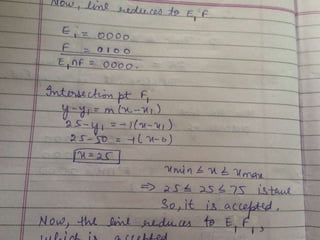 Now, line reduces to E₁F
E₁ = 0000
F = 0100
E₁∩F = 0000.
Intersection pt F₁
y-y₁ = m(x-x₁)
25-y₁ = -1(x-x₁)
25-50 = -1(x-0)
x=25
xmin ≤ x ≤ xmax
⇒ 25 ≤ 25 ≤ 75 is true
So, it is accepted.
Now, the line reduces to E₁F₁,
which is accepted